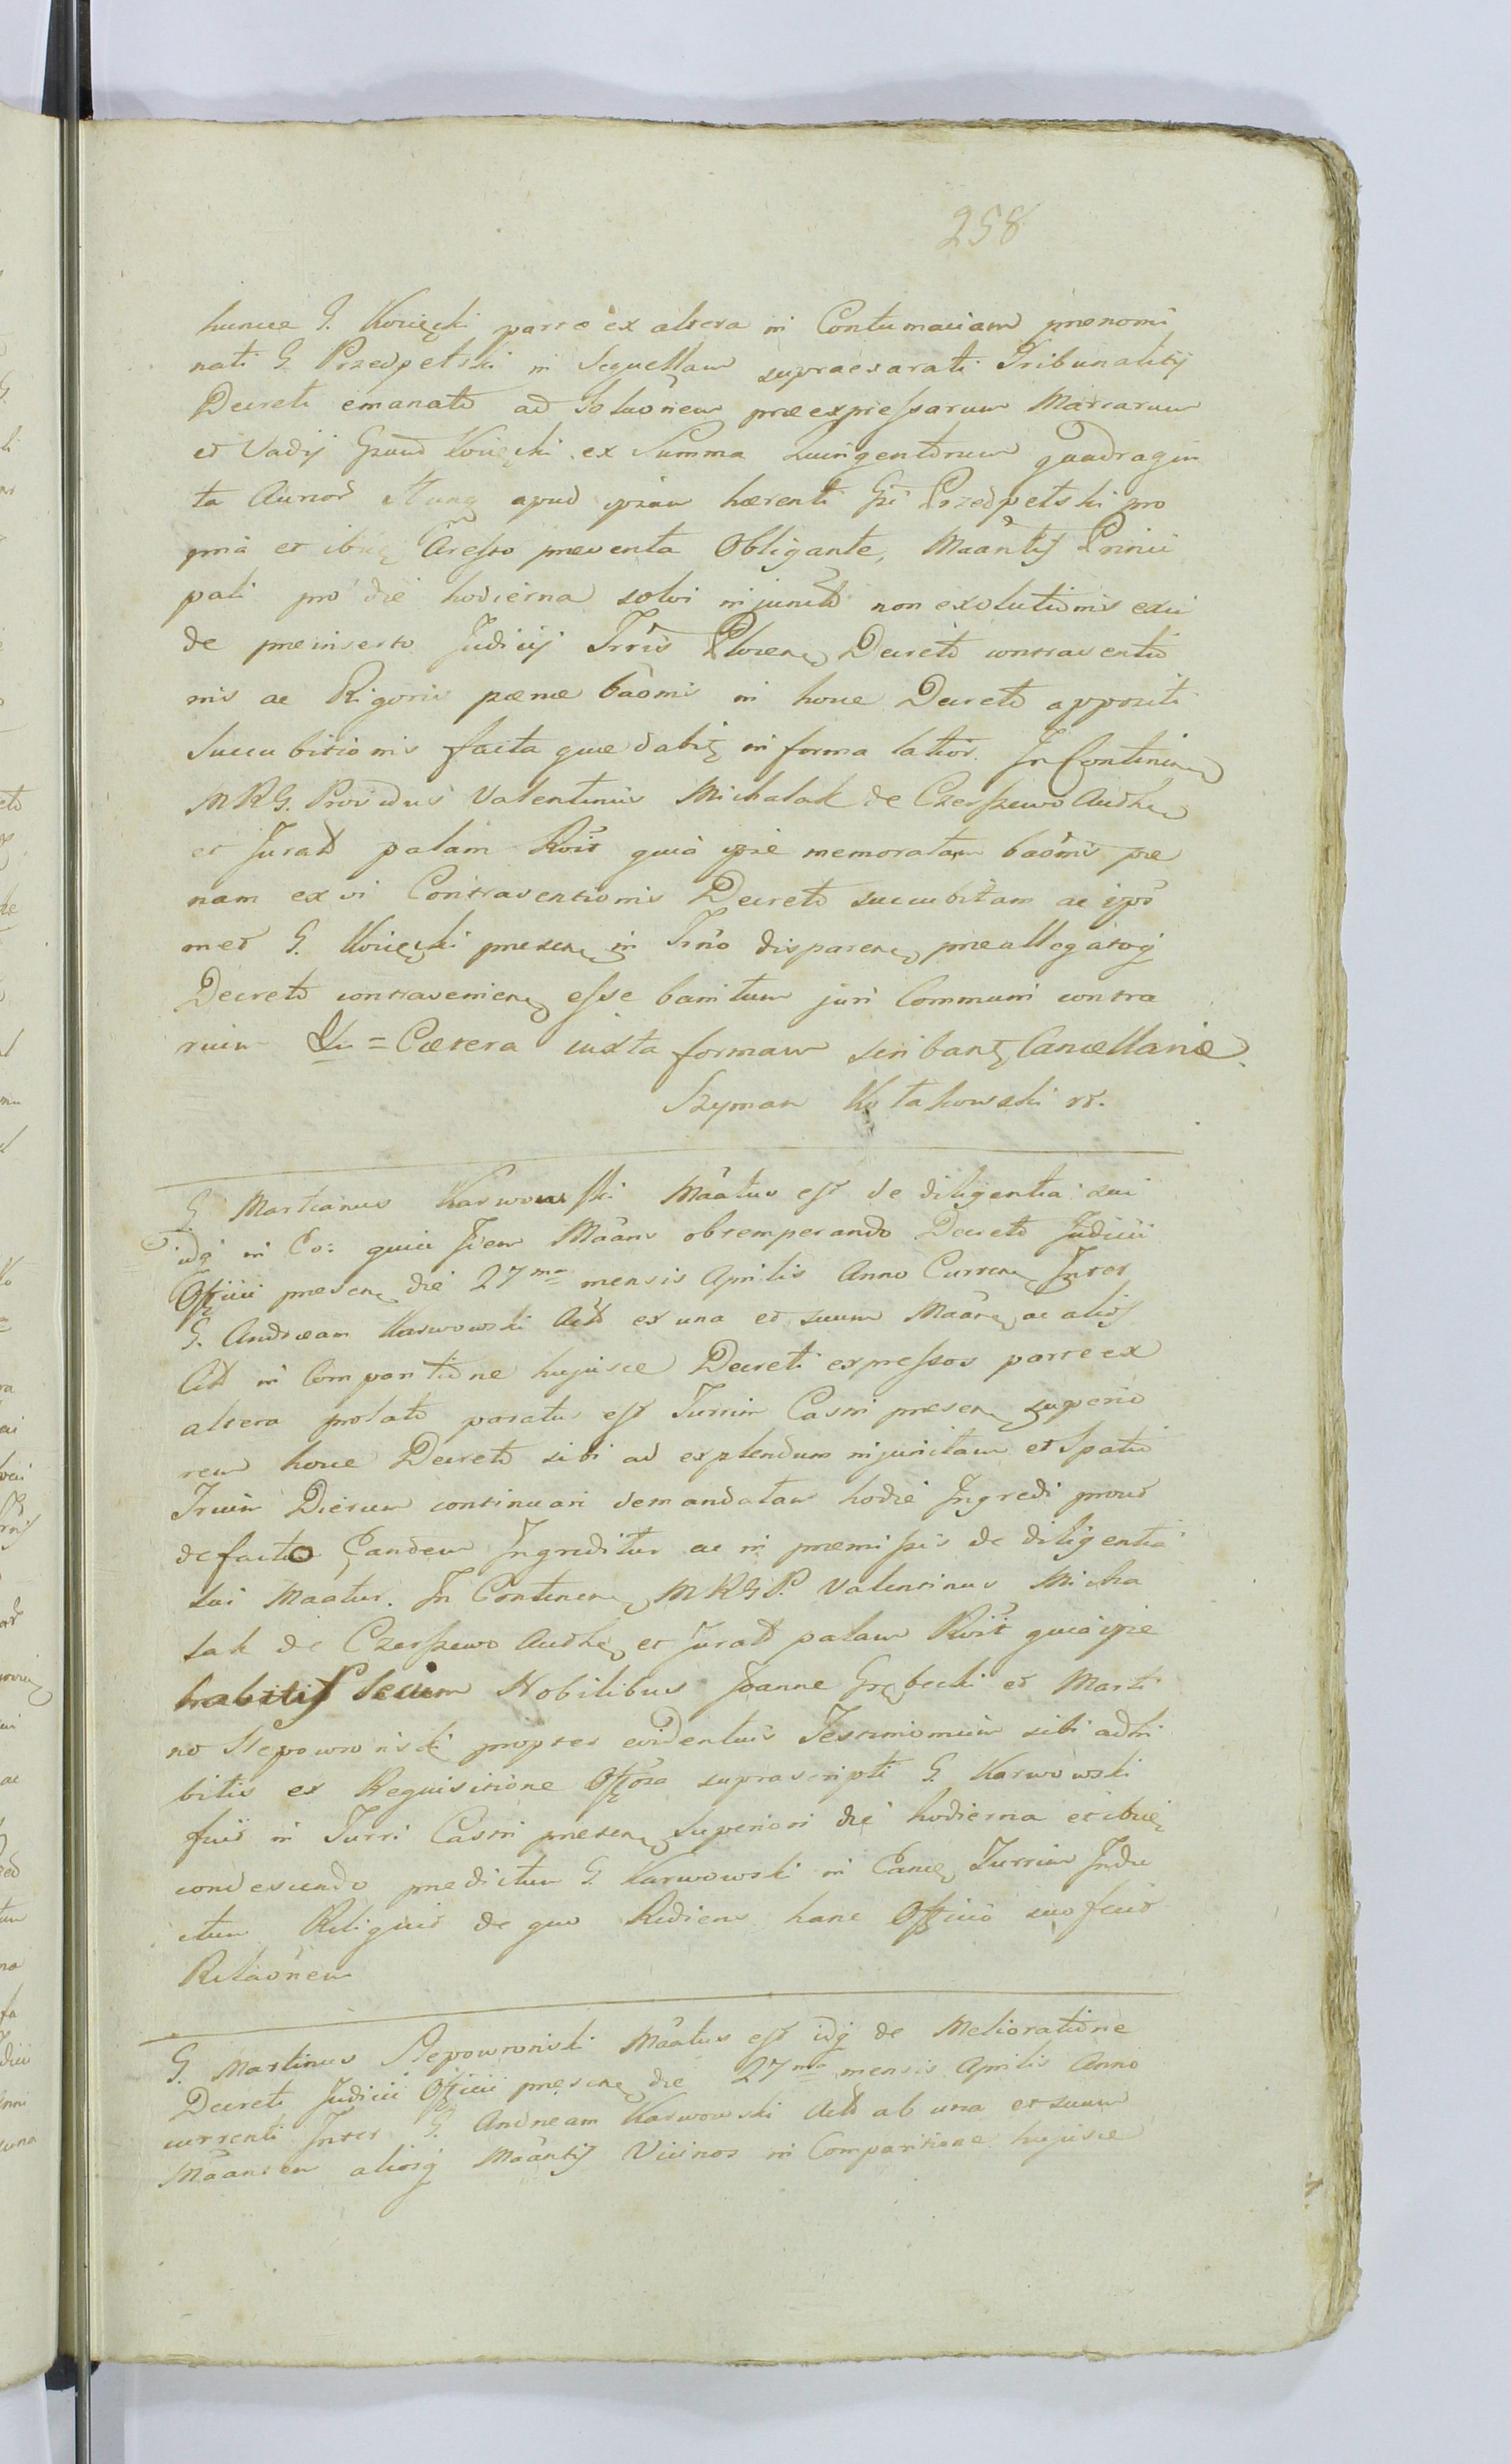 258
huncce G. Kocięcki parte ex altera in Contumaciam prænomi
nati G. Przedpełski in Sequellam supraexarati Tribunalitij
Decreti emanato ad Soluōnem præexpressarum Marcarum
et Vadij Gnd Kocięcki ex Summa Quingentorum quadragin
ta Aureor apud ipsum hærenti Gsi Przedpełski pro
pria et ibiq Aresto præventa Obligante, Māantis Princi
pali pro die hodierna solvi injuncto non exolutionis exci
de præinserto Judicij Trris Plocen Decreto contraventio
nis ac Rigoris pænæ baōnis in hocce Decreto appositi
Succubitionis facta quæ dabit in forma latior. In Continen
MRG. Providus Valentinus Michalak de Czerszewo Audhen
et Jurat palam Rcit quia ipse memoratam baōnis pæ
nam ex vi Contraventionis Decreto succubitam ac ipso
met G. Kocięcki præsen in Trno disparen præallegatoq
Decreto contravenien esse banitum juri Communi contra
rium = Cætera iuxta formam scribant Cancellariæ
Szyman Kołakowski
G Martianus Karwowski Māatus est de diligentia sui
idq in Eo: quia Idem Māans obtemperando Decreto Judicii
Officii præsen die 27ma mensis Aprilis Anno Curren Inter
G. Andream Karwowski Act ex una et suum Māan ac alios
Citt in Comparitione hujusce Decreti expressos parte ex
altera prolato paratus est Turrim Castri præsen superio
rem hocce Decreto sibi ad explendum injunctam et Spatio
Trium Dierum continuari demandatam hodie Ingredi prout
de facto Eandem Ingreditur ac in præmissis de diligentia
sui Maatur. In Continen MRGP. Valentinus Micha
lak de Czerszewo Audhen et Jurat palam Rcit quia ipse
habitis Secum Nobilibus Joanne Grębecki et Marti
no Slepowronski propter evidentius Testimonium sibi adhi
bitis ex Requisitione Offōsa suprascripti G. Karwowski
fuit in Turri Castri præsen Superiori die hodierna et ibiq
condescendo prædictum G. Karwowski in Eanq Turrim Indu
ctum Reliquit de quo Rediens hanc Officio suo fecit
Relaōnem
G. Martinus Slepowronski Māatus est idq de Melioratione
Decreti Judicii Officii præsen die 27ma mensis Aprilis Anno
currenti Inter G. Andream Karwowski Act ab una et suum
Māantem aliosq Māantis Vicinos in Comparitione hujusce